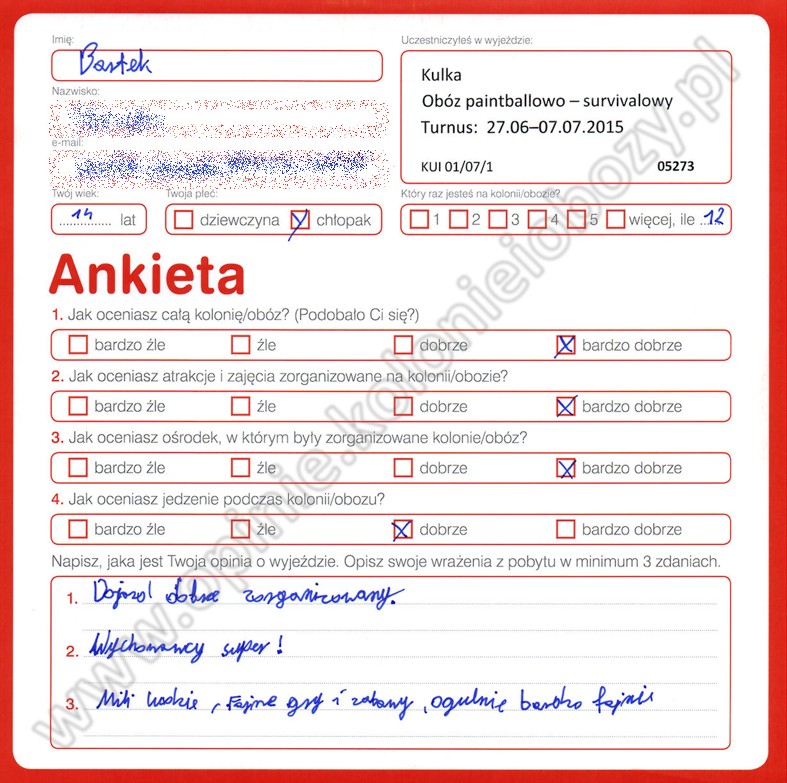 Imię:
Bartek
Uczestniczyłeś w wyjeździe:
Kulka
Obóz paintballowo – survivalowy
Turnus: 27.06–07.07.2015
KUI 01/07/1 05273
Nazwisko:
e-mail:
Twój wiek:
14 lat
Twoja płeć:
dziewczyna chłopak
Który raz jesteś na kolonii/obozie?
1 2 3 4 5 więcej, ile 12
Ankieta
1. Jak oceniasz całą kolonię/obóz? (Podobało Ci się?)
bardzo źle źle dobrze bardzo dobrze
2. Jak oceniasz atrakcje i zajęcia zorganizowane na kolonii/obozie?
bardzo źle źle dobrze bardzo dobrze
3. Jak oceniasz ośrodek, w którym były zorganizowane kolonie/obóz?
bardzo źle źle dobrze bardzo dobrze
4. Jak oceniasz jedzenie podczas kolonii/obozu?
bardzo źle źle dobrze bardzo dobrze
Napisz, jaka jest Twoja opinia o wyjeździe. Opisz swoje wrażenia z pobytu w minimum 3 zdaniach.
1. Dojazd dobrze zorganizowany.
2. Wychowawcy super!
3. Mili ludzie, Fajne gry i zabawy, ogulnie bardzo fajnie
www.opinie.kolonieiobozy.pl